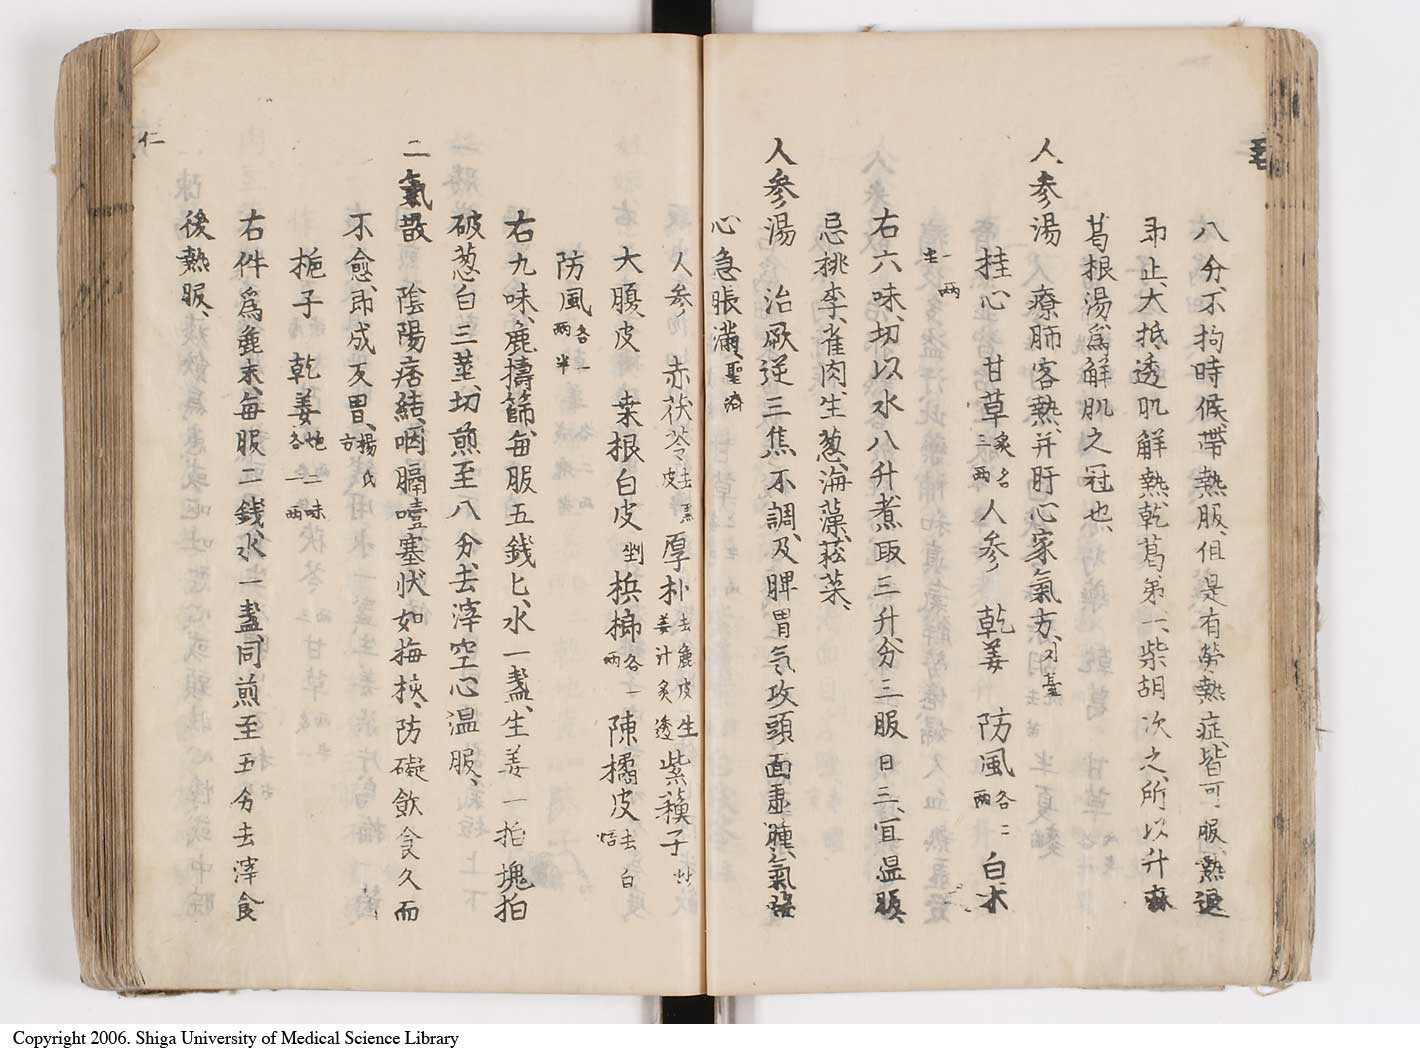 八分、不拘時候、帶熱服、但是有勞熱症、皆可服、熱退
即止、大抵透肌解熱、乾葛弟一、柴胡次之、所以升麻
葛根湯爲解肌之冠也、
人參湯 療肺客熱并肝心家氣方、外臺
桂心一兩 甘草炙三兩 人參 乾姜 防風各二兩 白朮
右六味、切以水八升煮取三升分三服日三、宜温服
忌桃李、雀肉、生葱、海藻、菘菜、
人參湯 治厥逆三焦不調、及脾胃氣攻頭面虛腫、氣
心急脹滿、聖濟
人參 赤茯苓去黑皮 厚朴去麁皮生姜汁炙透 紫蘇子炒
大腹皮 桒根白皮剉 梹榔各一兩 陳橘皮去白焙
防風各一兩半
右九味、麁擣篩、每服五錢匕、水一盞、生姜一拍塊拍
破葱白三莖、切煎至八分、去滓空心温服、
二氣散 陰陽痞結、咽膈噎塞狀如梅核、防礙飲食久而
不愈、即成反胃、楊氏方
梔子 乾姜炮二味各一兩
右件爲麁末、每服二錢水一盞、同煎至五分去滓食
後熱服、
仁
Copyright 2006. Shiga University of Medical Science Library